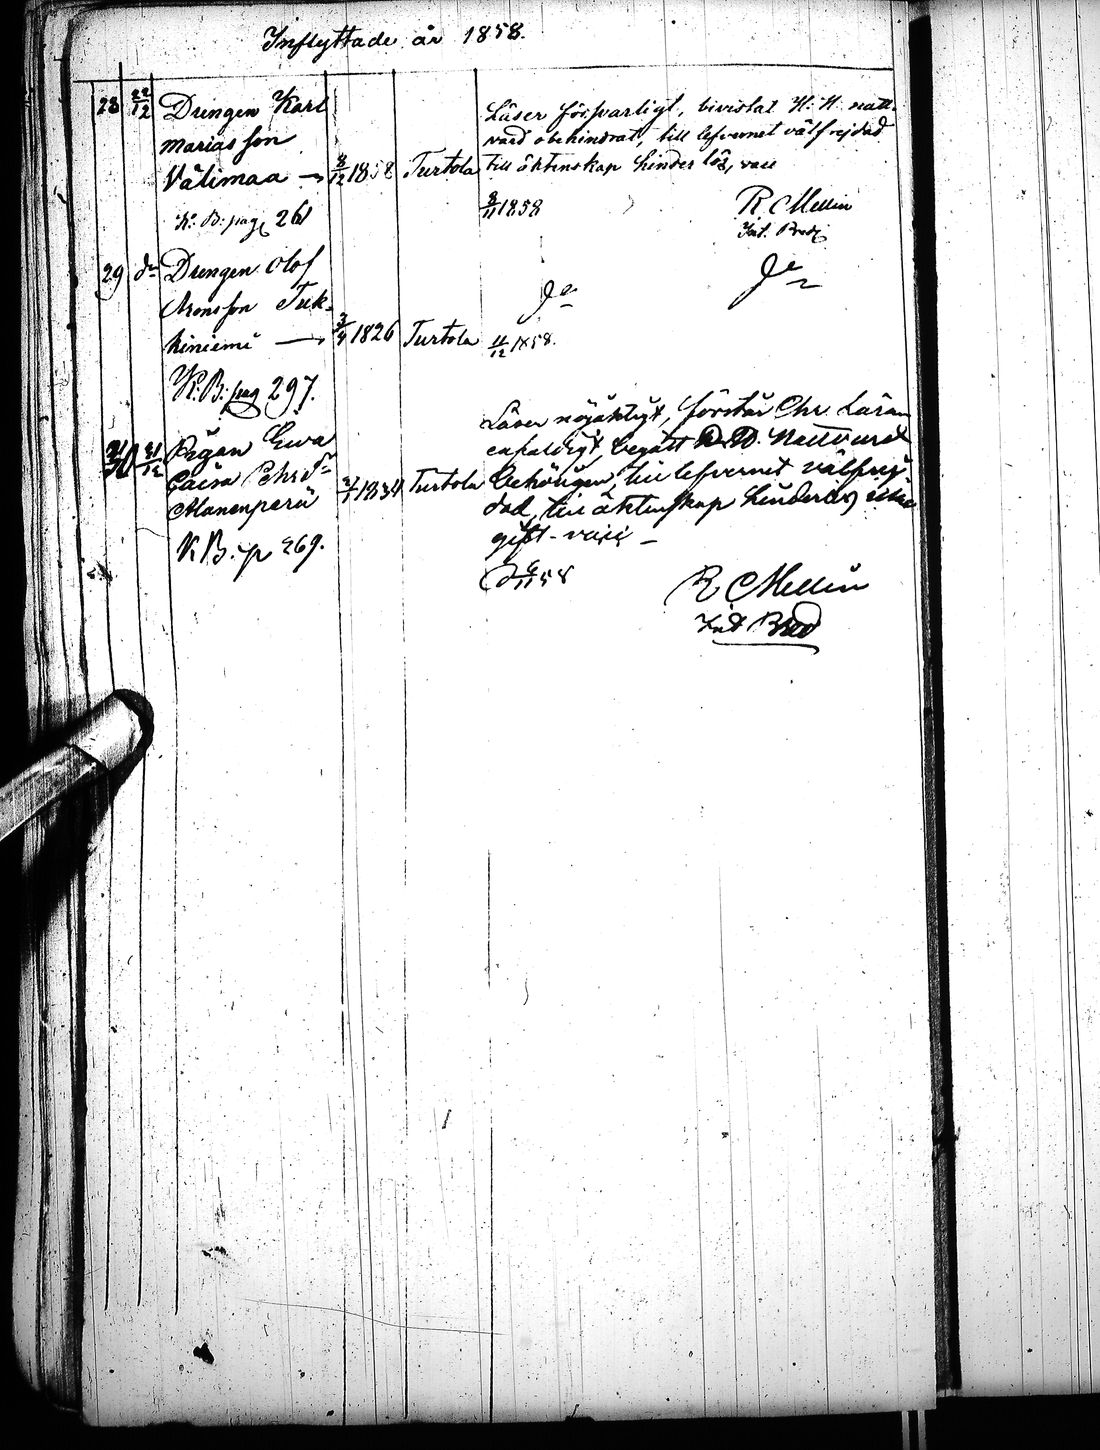 Inflyttade år 1858.
28 22/12 Drengen Karl
Marias son
Välimaa 8/12 1858 Turtola
K. B. pag 261
Läser försvarligt, bivistat H. H. natt-
vard obehindrat, till lefvernet välfrejdad
till äktenskap hinderlös, vare
8/11 1858
R. Mellin
Int. Predi
29 do Drengen Olof
Aronsson Juk-
kiniemi 3/4 1826 Turtola
K. B. pag 297.
11/12 1858.
30 31/12 Pigan Ewa
Caisa Pehrsdr
Alanenperä 1834 Turtola
K B. p 269.
Läser nöjaktigt, förstår Chr. Läran
enfaldigt, begått Nattvard
behörigen, till lefvernet välfrej
dad, till äktenskap hinderlös
gift - vari -
58
R Mellin
Int Pred